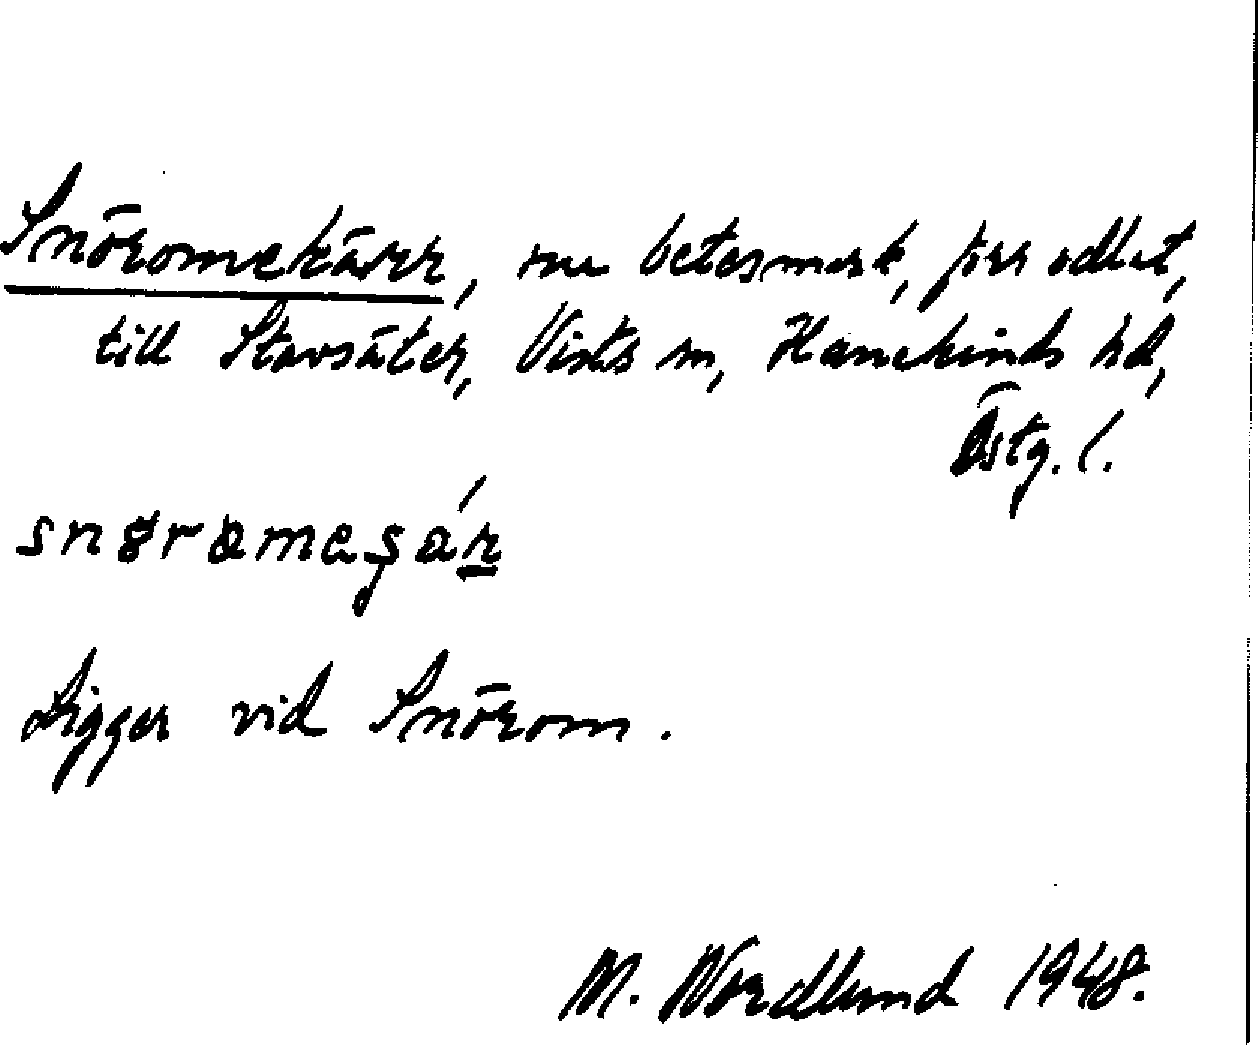 Snöromekärr, nu betesmark, förr odlat,
till Stavsäter, Vists sn, Hanekinds hd,
Östg. l.
snørameşár
Ligger vid Snörom.
M. Nordlund 1948.